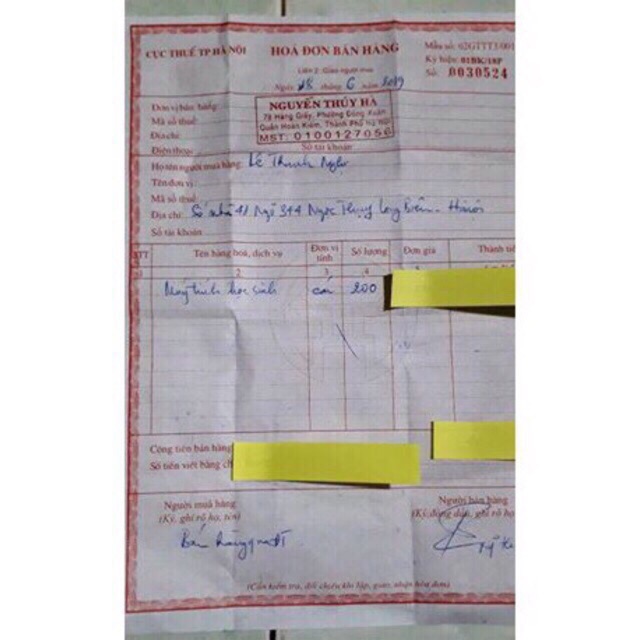 CỤC THUẾ TP HÀ NỘI
HOÁ ĐƠN BÁN HÀNG
Liên 2: Giao người mua
Ngày 28 tháng 6 năm 2019
Mẫu số: 02GTTT3/001
Ký hiệu: 01BK/18P
Số: 0030524
Đơn vị bán hàng:
Mã số thuế:
Địa chỉ:
Điện thoại:
Số tài khoản
NGUYỄN THÚY HÀ
79 Hàng Giấy, Phường Đồng Xuân
Quận Hoàn Kiếm, Thành Phố Hà Nội
MST: 0100127056
Họ tên người mua hàng: Lê Thanh
Tên đơn vị:
Mã số thuế:
Địa chỉ: Số nhà 41 Ngõ 344 Ngọc Thụy Long Biên - Hà Nội
Số tài khoản
STT Tên hàng hoá, dịch vụ Đơn vị tính Số lượng Đơn giá Thành tiề
1 2 3 4
Máy tính học sinh cái 200
Cộng tiền bán hàng
Số tiền viết bằng ch
Người mua hàng
(Ký, ghi rõ họ, tên)
Bán hàng qua ĐT
Người bán hàng
(Ký, đóng dấu, ghi rõ họ
(Cần kiểm tra, đối chiếu khi lập, giao, nhận hóa đơn)